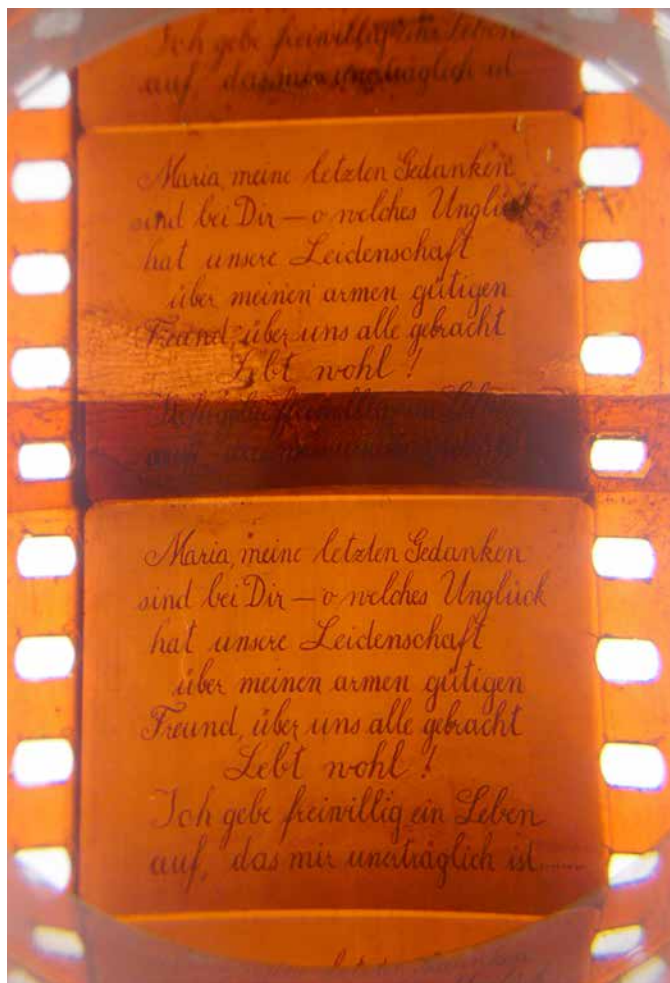 Ich gebe freiwillig ein Leben
auf, das mir unerträglich ist
Maria, meine letzten Gedanken
sind bei Dir — o welches Unglück
hat unsere Leidenschaft
über meinen armen gütigen
Freund, über uns alle gebracht
Lebt wohl !
Ich gebe freiwillig ein Leben
auf, das mir unerträglich
Maria, meine letzten Gedanken
sind bei Dir — o welches Unglück
hat unsere Leidenschaft
über meinen armen gütigen
Freund, über uns alle gebracht
Lebt wohl !
Ich gebe freiwillig ein Leben
auf, das mir unerträglich ist......
letzten Gedanken